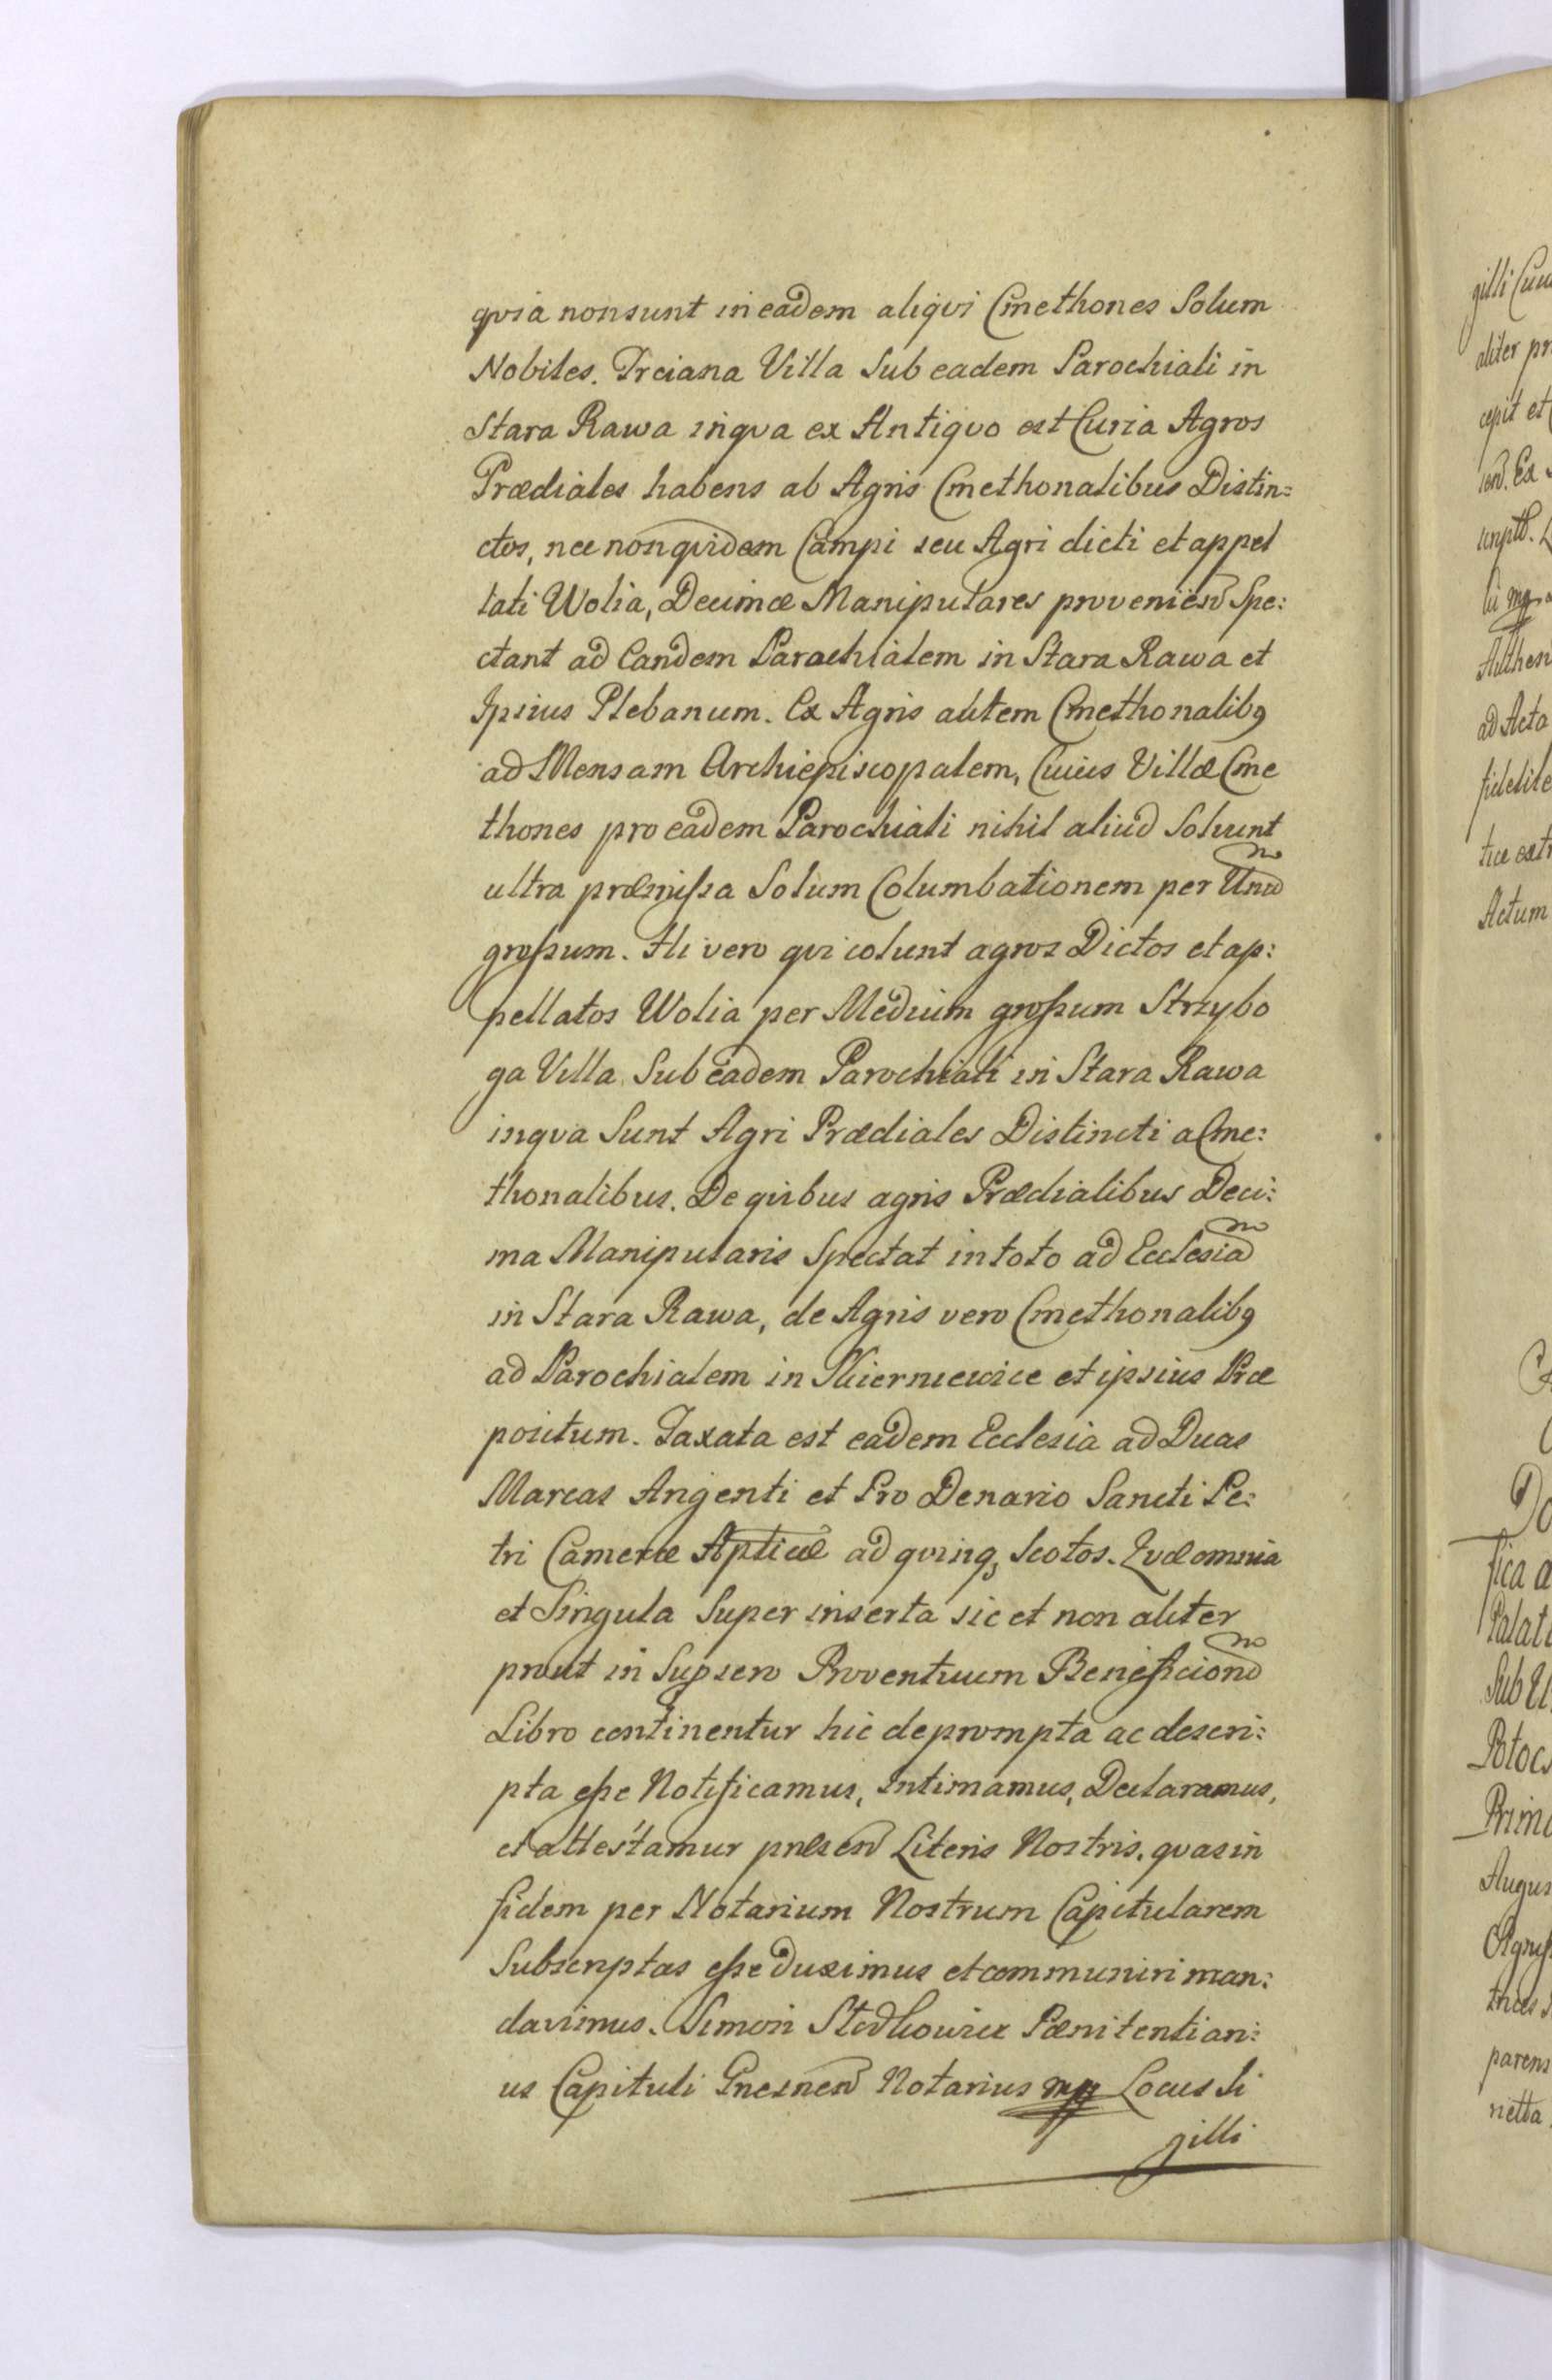 qvia non sunt in eadem aliqvi Cmethones Solum
Nobiles. Trciana Villa Sub eadem Parochiali in
Stara Rawa in qva ex Antiqvo est Curia Agros
Prædiales habens ab Agris Cmethonalibus Distin:
ctos, nec non qvidem Campi seu Agri dicti et appel
lati Wolia, Decimæ Manipulares provenien Spe:
ctant ad Eandem Parochialem in Stara Rawa et
Ipsius Plebanum. Ex Agris autem Cmethonalibq
ad Mensam Archiepiscopalem, Cuius Villæ Cme
thones pro eadem Parochiali nihil aliud Solvunt
ultra præmissa Solum Columbationem per Unum
grossum. Hi vero qvi colunt agros Dictos et ap:
pellatos Wolia per Medium grossum Strzybo
ga Villa Sub eadem Parochiali in Stara Rawa
in qva Sunt Agri Prædiales Distincti a Cme:
thonalibus. De qvibus agris Prædialibus Deci:
ma Manipularis Spectat in toto ad Ecclesiam
in Stara Rawa, de Agris vero Cmethonalibq
ad Parochialem in Skierniewice et ipsius Præ
positum. Taxata est eadem Ecclesia ad Duas
Marcas Argenti et Pro Denario Sancti Pe:
tri Cameræ Aplicæ ad qvinq, Scotos. Qvæ omnia
et Singula Super inserta sic et non aliter
prout in Supsero Proventuum Beneficiorum
Libro continentur hic deprompta ac descri:
pta esse Notificamus, Intimamus, Declaramus,
et attestamur pnlesen Literis Nostris. qvas in
fidem per Notarium Nostrum Capitularem
Subscriptas esse Duximus et communiri man:
davimus. Simon Pænitentiari:
us Capituli Gnesnen Notarius mp Locus Si
gilli